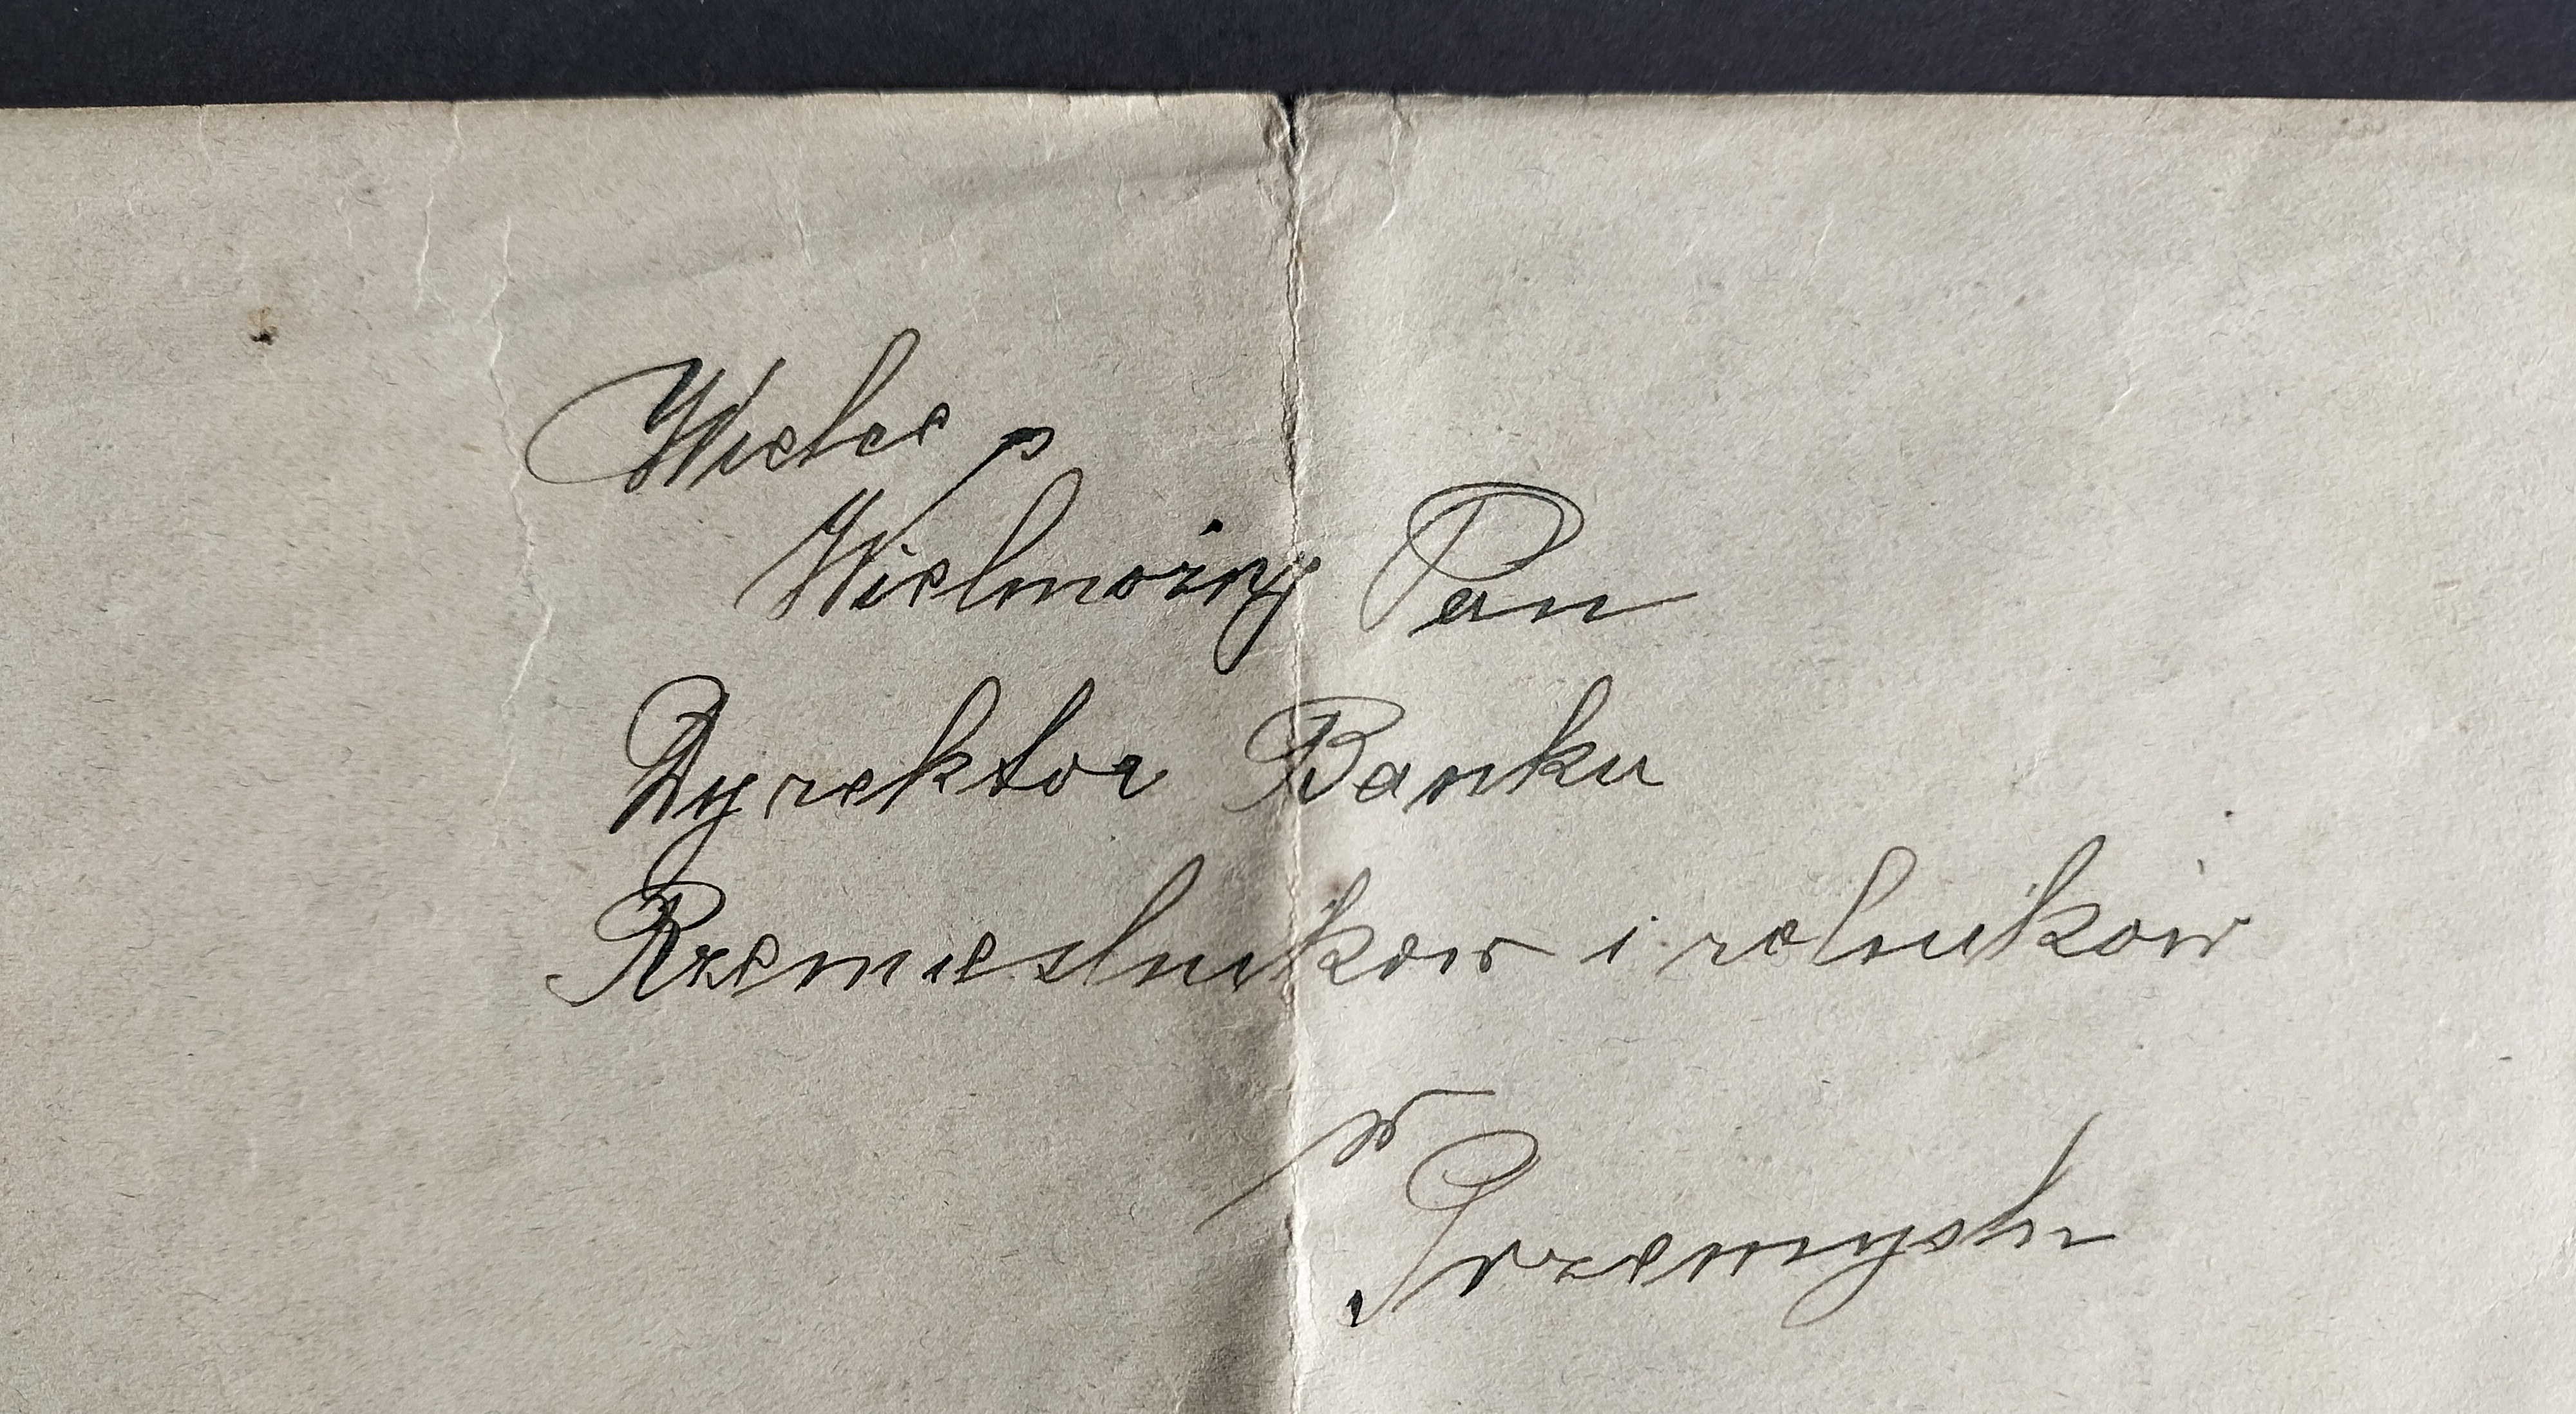 Wielce
Wielmożny Pan
Dyrektor Banku
Rzemieslnikow i rolników
w
Przemyslu